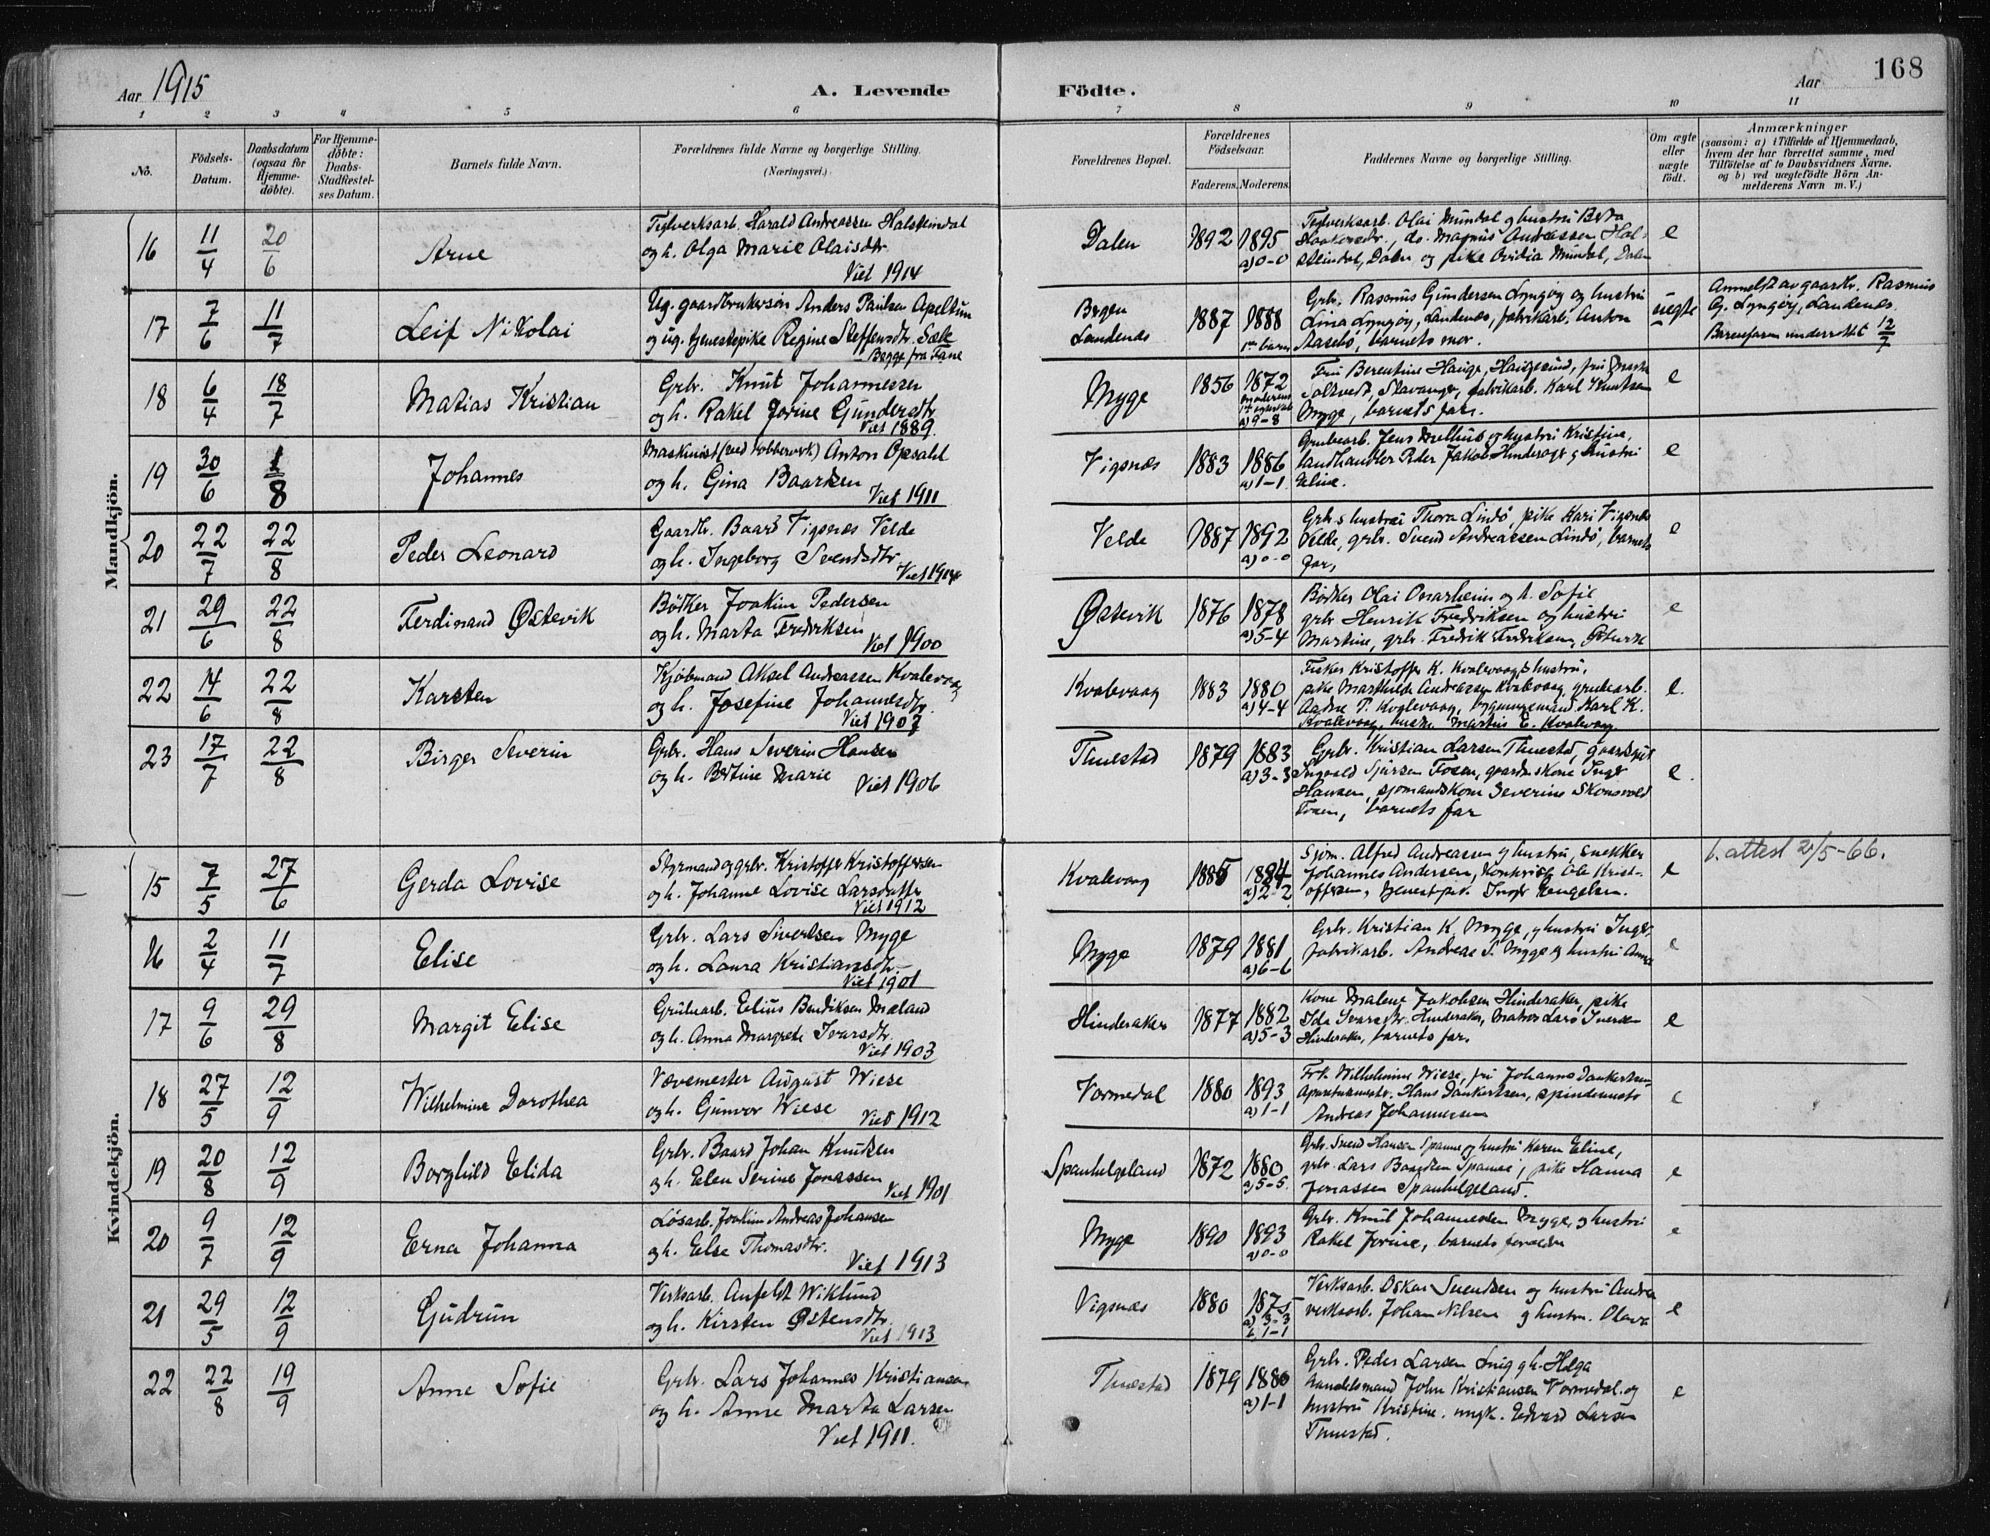 168
Aar 1915
A. Levende Födte.
Aar
1 2 3 4 5 6 7 8 9 10 11
No.
Födsels-Datum.
Daabsdatum (ogsaa for Hjemmedöbte).
For Hjemmedöbte: Daabs-Stadfæstelses Datum.
Barnets fulde Navn.
Forældrenes fulde Navne og borgerlige Stilling. (Næringsvei.)
Forældrenes Bopæl.
Forældrenes Födselsaar.
Faderens. Moderens.
Faddernes Navne og borgerlige Stilling.
Om ægte eller uægte födt.
Anmærkninger
(saasom: a) i Tilfælde af Hjemmedaab, hvem der har forrettet samme, med Tilföielse af to Daabsvidners Navne, og b) ved uægtefödte Börn Anmelderens Navn m. V.)
Mandkjön.
16 11/4 20/6 Arne
Teglverksarb. Harald Andreassen
og h. Olga Marie Olaisdtr.
Viet 1914
Dalen 1892 1895 a) 0-0
Teglverksarb. Olai Mundal og hustru
do. Magnus Andreassen
Dalen og pike Ovidia Mundal, Dalen
e
17 7/6 11/7 Leif Nikolai
Ug. gaardbrukersøn Anders Paulsen Apeltun
og ug. tjenestepike Regine Steffensdtr. Sæle
Begge fra Fane
Bergen
1887 1888 1ste barn
Grbr. Rasmus Gundersen Lyngøy og hustru
Lina Lyngøy, fabrikarb. Anton
barnets mor.
uegte
Anmeldt av gaardbr. Rasmus
G. Lyngøy,
underrettet 12/7
18 6/4 18/7 Matias Kristian
Grbr. Knut Johannessen
og h. Rakel Jorine Gundersdtr.
Viet 1889.
Myge 1856 1872
a) 9-8
Fru Berentine Hauge, Haugesund, fru
Stavanger, fabrikarb. Karl Knutsen
Myge, barnets far.
e
19 30/6 1/8 Johannes
Maskinist (ved kobberverk) Anton Opsahl
og h. Gina Baardsen
Viet 1911
Vigsnæs 1883 1886 a) 1-1
Grubearb. Jens og hustru Kristine,
landhandler Peder Jakob Hinderager og hustru
Eline.
e
20 22/7 22/8 Peder Leonard
Gaardbr. Baard Vigsnæs Velde
og h. Ingeborg Svendsdtr.
Viet 1914
Velde 1887 1892 a) 0-0
Grbr.s hustru Thora Lindø, pike Kari Vigsnæs
Velde, grbr. Svend Andreassen Lindø, barnets
far,
e
21 29/6 22/8 Ferdinand Østevik
Bødker Joakim Pedersen
og h. Marta Fredriksen
Viet 1900
Østevik 1876 1878 a) 5-4
Bødker Olai Onarheim og h. Sofie
grbr Henrik Fredriksen og hustru
Martine, grbr. Fredrik Fredriksen,
e
22 14/6 22/8 Karsten
Kjøbmand Aksel Andreassen Kvalevaag
og h. Josefine Johannesdtr.
Viet 1907
Kvalevaag 1883 1880 a) 4-4
Fisker Kristoffer K. Kvalevaag & hustru,
pike Mathilde Andreassen Kvalevaag, grubearb.
Aadne T. Kvalevaag, Karl K.
Kvalevaag, Martin E. Kvalevaag
e.
23 17/7 22/8 Birger Severin
Grbr. Hans Severin Hansen
og h. Bertine Marie
Viet 1906
Thuestad 1879 1883 a) 3-3
Grbr. Kristian Larsen Thuestad,
Ingvald Sjursen Fosen, gaardmskone Inger
Hansen, sjomandskone Severine
Fosen, barnets far
e.
Kvindekjön.
15 7/5 27/6 Gerda Lovise
Styrmand og grbr. Kristoffer Kristoffersen
og h. Johanne Lovise Larsdatter
Viet 1912
Kvalevaag 1885 1884 a) 2-2
Sjøm. Alfred Andreassen og hustru, snekker
Johannes Andersen, Ole Krist-
offersen, tjenestepik. Inger
e
b. attest 21/5-66.
16 2/4 11/7 Elise
Grbr. Lars Sivertsen Myge
og h. Laura Kristiansdtr.
Viet 1901
Myge 1879 1881 a) 6-6
Grbr. Kristian K. Myge, og hustru Inger,
fabrikarb. Andreas S. Myge og hustru Anna
e
17 9/6 29/8 Margit Elise
Grubearb. Elius Bendiksen Mæland
og h. Anna Margrete Ivarsdtr.
Viet 1903
Hinderaker 1877 1882 a) 5-3
Kone Malene Jakobsen Hinderaker, pike
Ida Ivarsdtr. Hinderaker, Matros Lars Iversen
Hinderaker, barnets far.
e
18 27/5 12/9 Wilhelmine Dorothea
Vævemester August Wiese
og h. Gunvor Wiese
Viet 1912
Vormedal 1880 1893 a) 1-1
Frk. Wilhelmine Wiese, fru Johanne Dankertsen
Hans Dankertsen,
Andreas Johannessen
e
19 20/8 12/9 Borghild Elida
Grbr. Baard Johan Knudsen
og h. Elen Serine Jonassen
Viet 1901
Spanhelgeland 1872 1880 a) 5-5
Grbr. Svend Hansen Spanne og hustru Karen Eline,
grbr. Lars Baardsen Spanne, pike Hanna
Jonassen Spanhelgeland.
e
20 9/7 12/9 Erna Johanna
Løsarb. Joakim Andreas Johansen
og h. Else Thomasdtr.
Viet 1913
Myge 1890 1893 a) 0-0
Grbr. Knut Johannessen Myge, og hustru
Rakel Jorine, barnets forældre
e
21 29/5 12/9 Gudrun
Verksarb. Anfeldt Wiklund
og h. Kirsten Østensdtr.
Viet 1913
Vigsnæs 1880 1875 a) 3-3 b) 1-1
Verksarb. Oskar Svendsen og hustru Andrea
verksarb. Johan Nilsen og hustru Olava
e
22 22/8 19/9 Anne Sofie
Grbr. Lars Johannes Kristiansen
og h. Anne Marta Larsen
Viet 1911.
Thuestad 1879 1880 a) 1-1
Grbr. Peder Larsen og h. Helga
handelsmand John Kristiansen Vormedal og
hustru Kristine. ungk. Edvard Larsen
Thuestad.
e